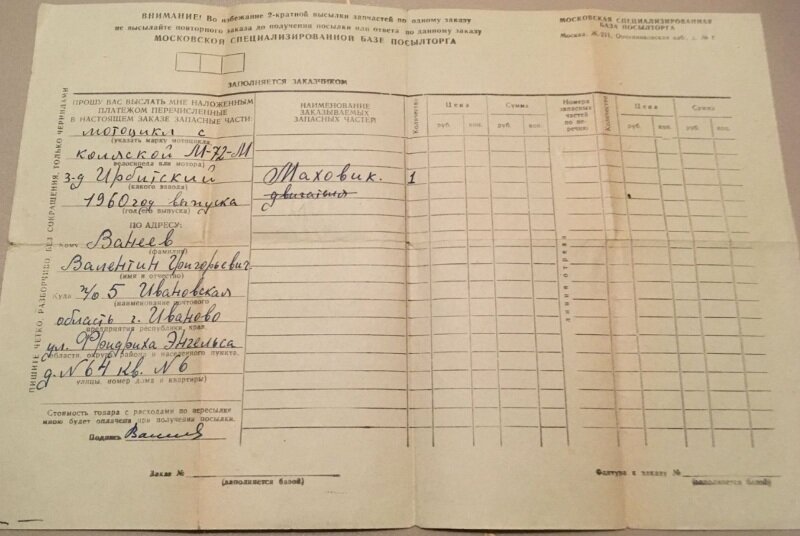 ВНИМАНИЕ! Во избежание 2-кратной высылки запчастей по одному заказу
не высылайте повторного заказа до получения посылки или ответа по данному заказу
МОСКОВСКОЙ СПЕЦИАЛИЗИРОВАННОЙ БАЗЕ ПОСЫЛТОРГА
МОСКОВСКАЯ СПЕЦИАЛИЗИРОВАННАЯ
БАЗА ПОСЫЛТОРГА
Москва, Ж-211, наб., д. №
ЗАПОЛНЯЕТСЯ ЗАКАЗЧИКОМ
ПИШИТЕ ЧЕТКО, РАЗБОРЧИВО, БЕЗ СОКРАЩЕНИЯ, ТОЛЬКО ЧЕРНИЛАМИ
ПРОШУ ВАС ВЫСЛАТЬ МНЕ НАЛОЖЕННЫМ
ПЛАТЕЖОМ ПЕРЕЧИСЛЕННЫЕ
В НАСТОЯЩЕМ ЗАКАЗЕ ЗАПАСНЫЕ ЧАСТИ:
мотоцикл с
(указать марку мотоцикла,
коляской М-72-М
велосипеда или мотора)
з-д Ирбитский
(какого завода)
1960 год выпуска
(год его выпуска)
ПО АДРЕСУ:
Кому Ванеев
(фамилия)
Валентин Григорьевич.
(имя и отчество)
Куда п/о 5 Ивановская
(наименование почтового
область г. Иваново
предприятия республики, края,
ул. Фридриха Энгельса
области, округа, района и населенного пункта,
д. N 64 кв. N 6
улицы, номер дома и квартиры)
Стоимость товара с расходами по пересылке
мною будет оплачена при получении посылки.
Подпись
НАИМЕНОВАНИЕ
ЗАКАЗЫВАЕМЫХ
ЗАПАСНЫХ ЧАСТЕЙ
Количество
Цена
руб. коп.
Сумма
руб. коп.
Номера
запасных
частей
по пе-
речню
Количество
Цена
руб. коп.
Сумма
руб. коп.
Маховик. 1
двигателя
линия отреза
Заказ №
(заполняется базой)
Фактура к заказу №
(заполняется базой)